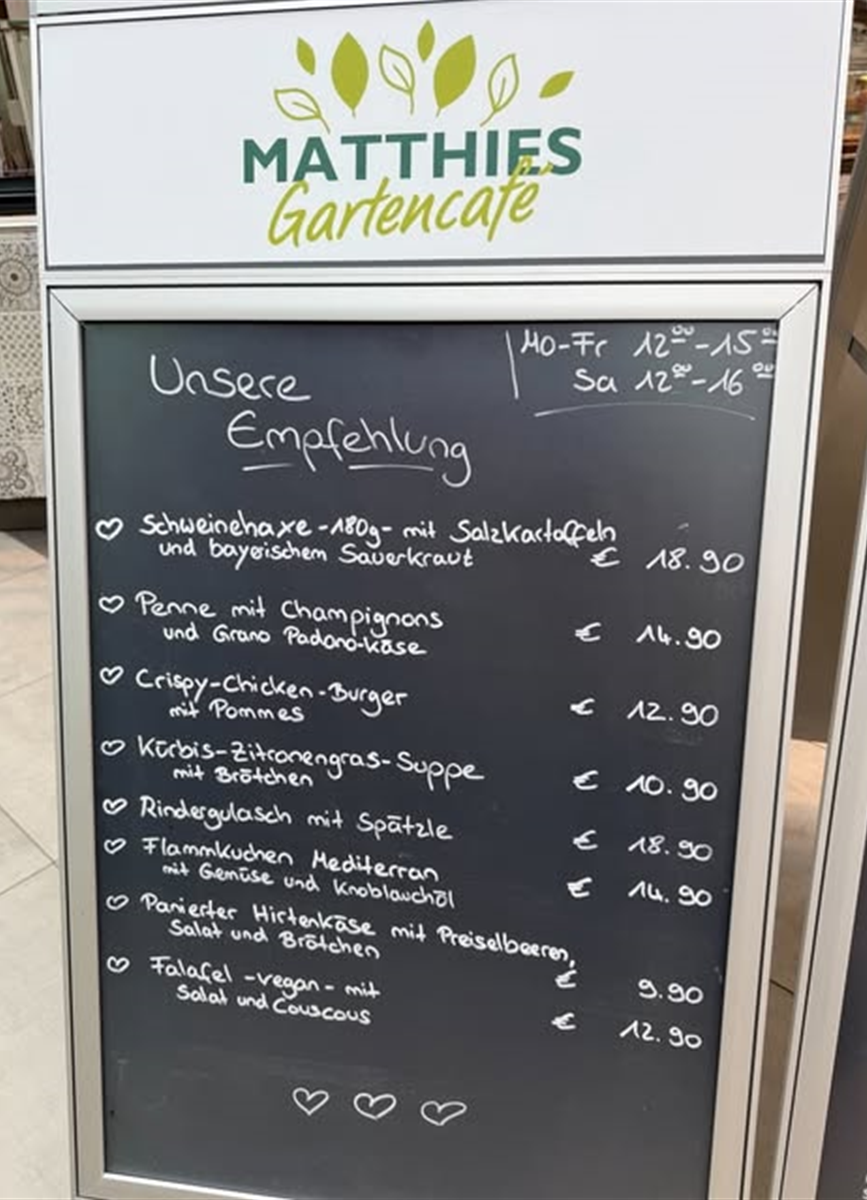 MATTHIES
Gartencafé
Mo-Fr 12⁰⁰-15⁰⁰
Sa 12⁰⁰-16⁰⁰
Unsere
Empfehlung
♡ Schweinehaxe -180g- mit Salzkartoffeln
und bayerischem Sauerkraut € 18.90
♡ Penne mit Champignons
und Grano Padano-Käse € 14.90
♡ Crispy-Chicken-Burger
mit Pommes € 12.90
♡ Kürbis-Zitronengras-Suppe
mit Brötchen € 10.90
♡ Rindergulasch mit Spätzle € 18.90
♡ Flammkuchen Mediterran
mit Gemüse und Knoblauchöl € 14.90
♡ Panierter Hirtenkäse mit Preiselbeeren,
Salat und Brötchen € 9.90
♡ Falafel -vegan- mit
Salat und Couscous € 12.90
♡ ♡ ♡